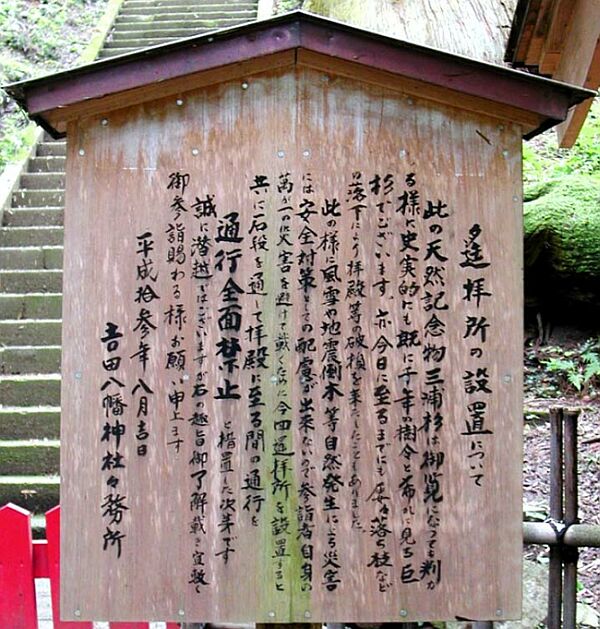 遥拝所の設置について
此の天然記念物三浦杉は御覧になっても判か
る様に史実的にも既に千年の樹令と希れに見る巨
杉でございます。亦今日に至るまでにも屡々落ち枝など
の落下により拝殿等の破損を来たしたこともありました。
此の様に風雪や地震倒木等自然発生による災害
には安全対策としての配慮が出来ないので参詣者自身の
萬が一の災害を避けて戴くために今回遥拝所を設置すると
共に石段を通して拝殿に至る間の通行を
通行全面禁止と措置した次第です
誠に潜越ではございますが右の趣旨御了解戴き宜敷く
御参詣賜わる様お願い申上ます
平成拾参年八月吉日
吉田八幡神社々務所